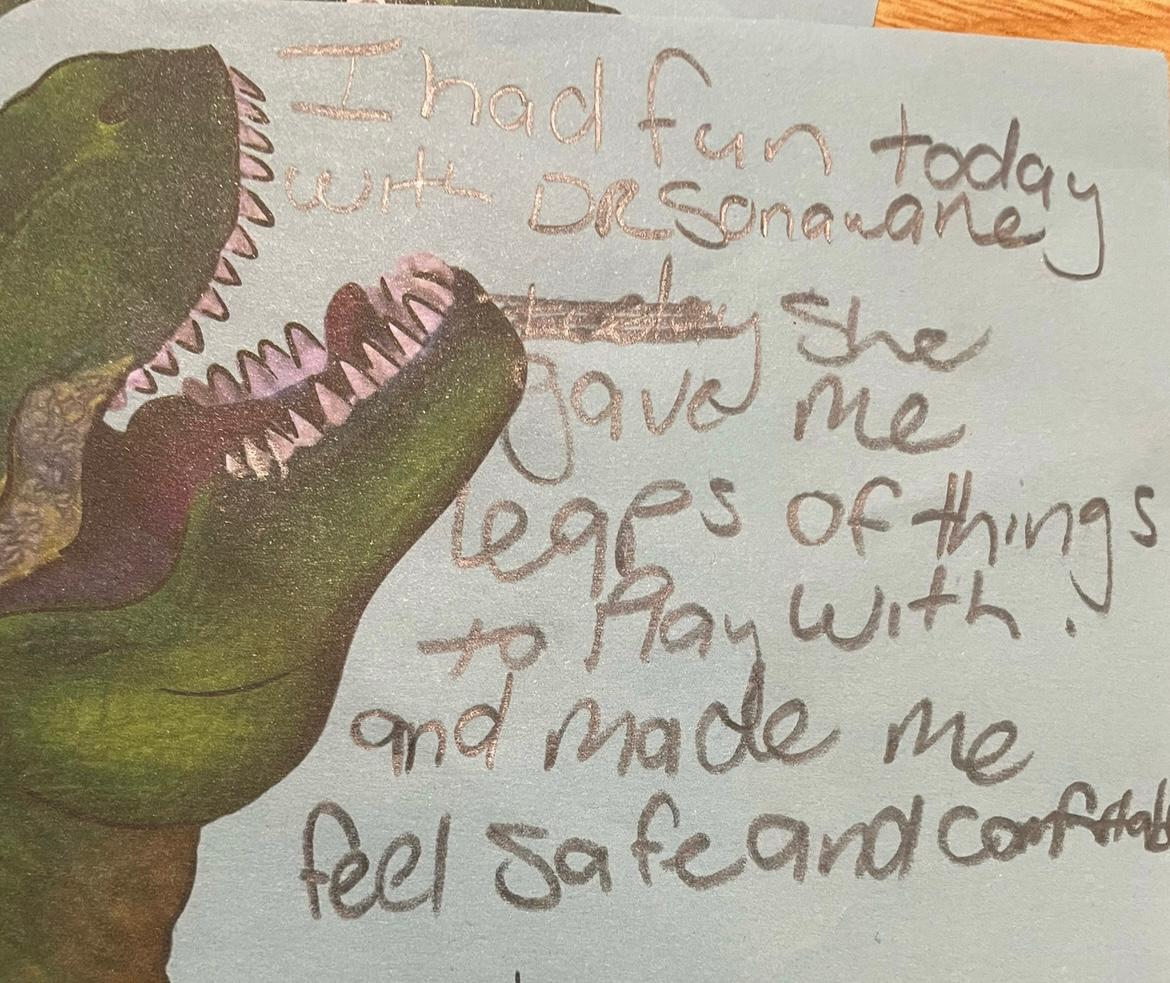 I had fun today
with DR Sonawane
today She
gave me
leaps of things
to Play with.
and made me
feel safe and comftab